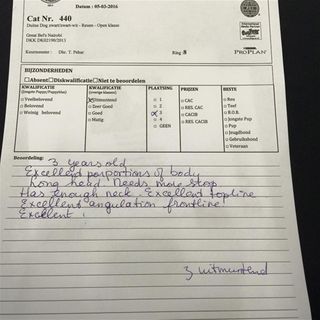 Datum : 05-03-2016
Cat Nr. 440
Duitse Dog zwart/zwart-wit - Reuen - Open klasse
Great Bel's Nairobi
DKK DK02190/2013
Keurmeester : Dhr. T. Pehar Ring 8
PRO PLAN
BIJZONDERHEDEN
Absent Diskwalificatie Niet te beoordelen
KWALIFICATIE KWALIFICATIE PLAATSING PRIJZEN BESTE
(Jongste Puppy/Puppyklas) (overige klassen)
Veelbelovend Uitmuntend 1 CAC Reu
Belovend Zeer Goed 2 RES. CAC Teef
Weinig belovend Goed 3 CACIB B.O.B.
Matig 4 RES. CACIB Jongste Pup
GEEN Pup
Jeugdhond
Gebruikshond
Veteraan
Beoordeling:
3 years old
Excellent porportions of body
Long head. Needs more stop
Has enough neck. Excellent topline
Excellent angulation frontline
Excellent
3 uitmuntend